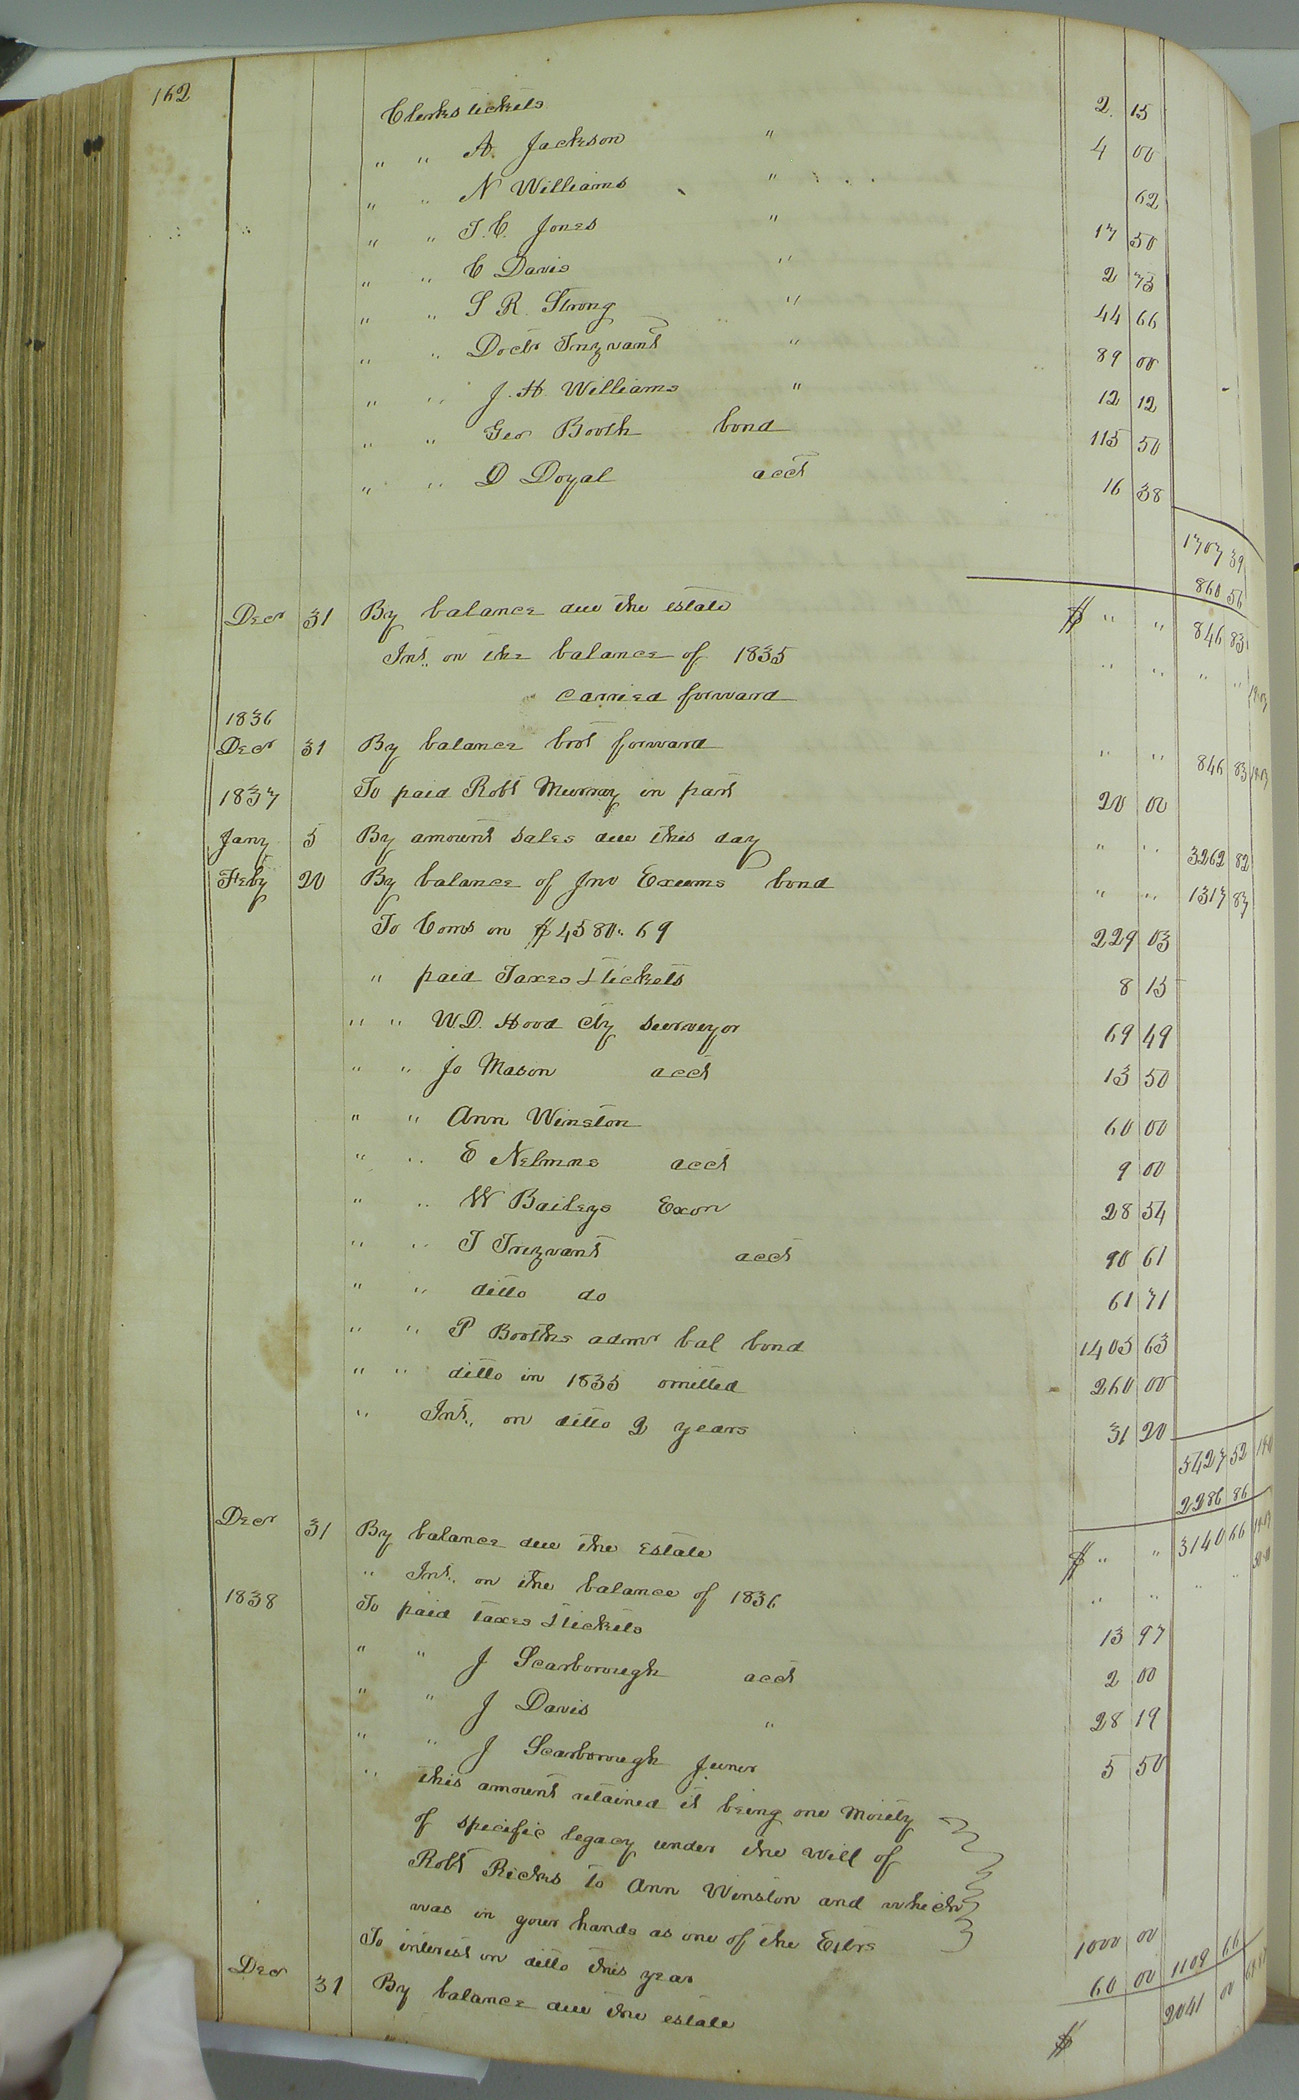 162
Clerks tickets 2. 15
" " A. Jackson " 4 00
" " N Williams " 62
" " T. C. Jones " 17 50
" " C Davis " 2 73
" " S R. Strong " 44 66
" " Doctr Trezvant " 89 00
" " J. H. Williams " 12 12
" " Geo Booth bond 115 50
" " D Doyal acct 16 38
1707 39
860 56
Decr 31 By balance due the estate $ " " 846 83
Int. on the balance of 1835 " " " "
carried forward
1836
Decr 31 By balance brot forward " " 846 83
1837 To paid Robt Murray in part 20 00
Jany 5 By amount sales due this day " " 3262 82
Feby 20 By balance of Jno Exums bond " " 1317 87
To Coms on $4580.69 229 03
" paid Taxes & tickets 8 15
" " W.D. Hood Cty surveyor 69 49
" " Jo Mason acct 13 50
" " Ann Winston 60 00
" " E Nelmns acct 9 00
" " W Baileys Exon 28 54
" " T Trezvant acct 90 61
" " ditto do 61 71
" " P Booths admr bal bond 1405 63
" " ditto in 1835 omitted 260 00
" Int., on ditto 2 years 31 20
5427 52
2286 86
Decr 31 By balance due the Estate $ " " 3140 66
" Int. on the balance of 1836 " " " "
1838 To paid taxes & tickets 13 97
" " J Scarborough acct 2 00
" " J Davis " 28 19
" " J Scarborough Junr 5 50
" this amount retained it being one Moiety
of specific legacy under the will of
Robt Ricks to Ann Winston and which
was in your hands as one of the Extrs 1000 00
To interest on ditto this year 60 00 1109 66
Decr 31 By balance due the estate $ 2041 00